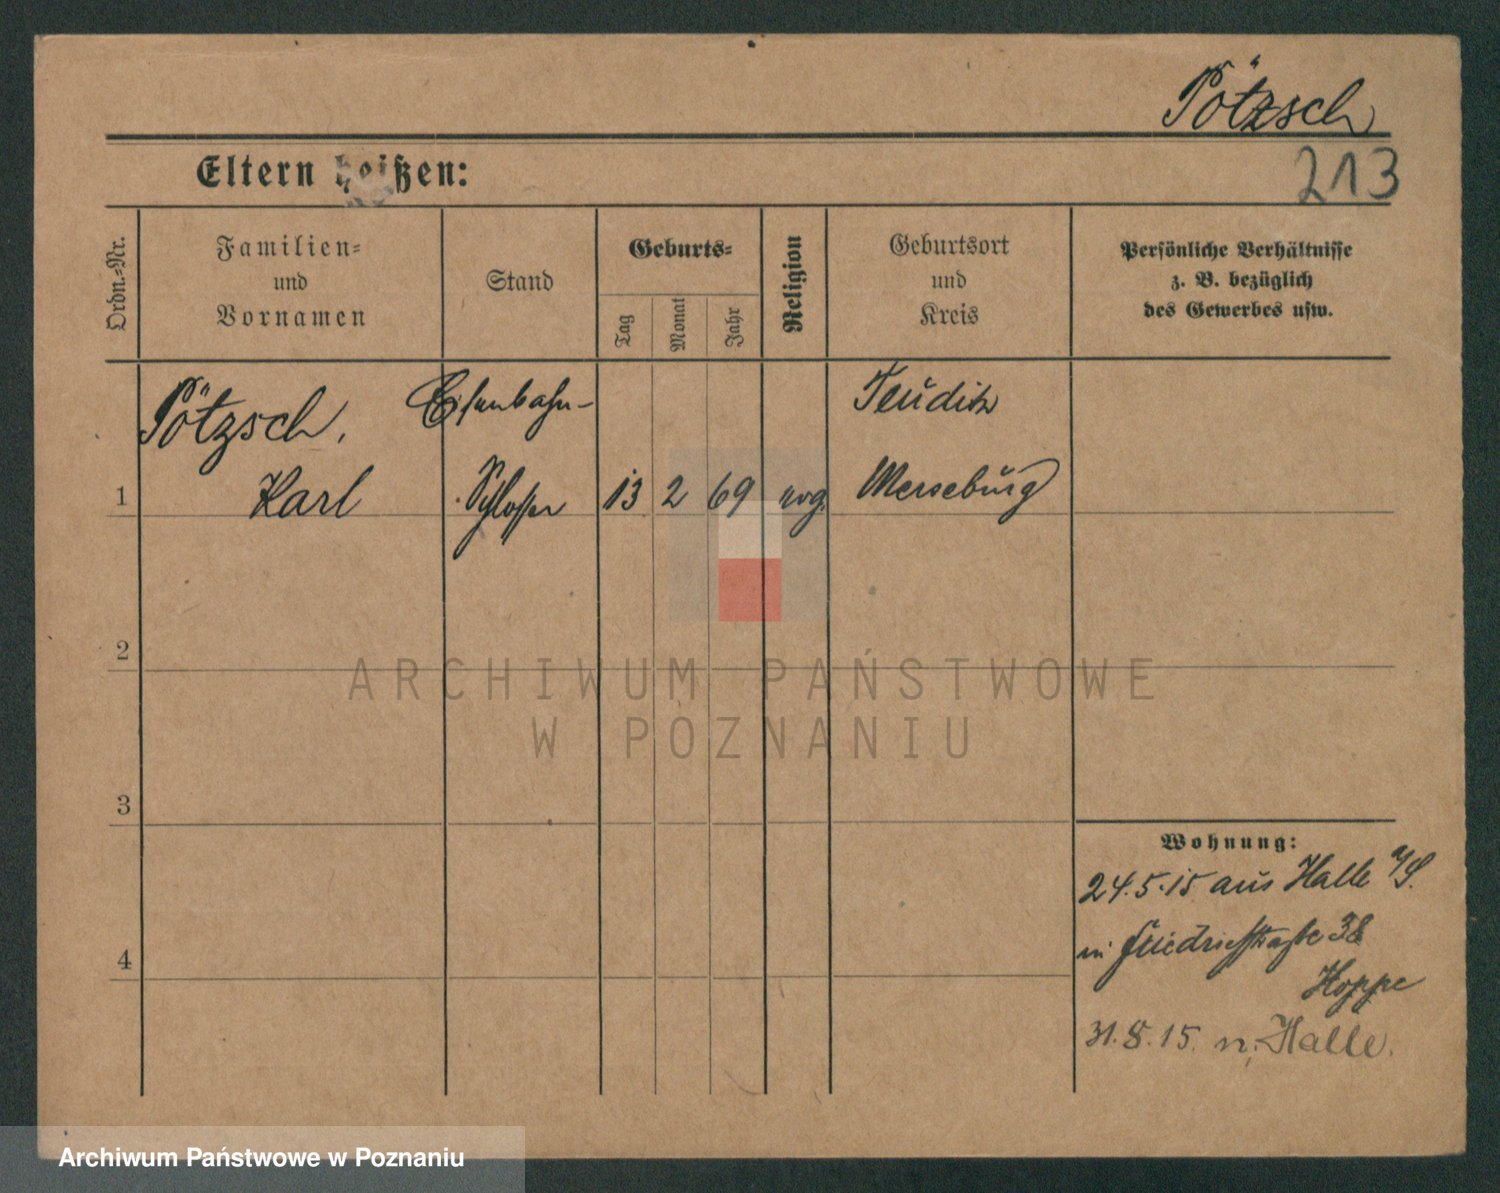 Pötzsch
213
Eltern heißen:
Ordn.-Nr.
Familien-
und
Vornamen
Stand
Geburts-
Tag
Monat
Jahr
Religion
Geburtsort
und
Kreis
Persönliche Verhältnisse
z. B. bezüglich
des Gewerbes usw.
Pötzsch,
Karl
Eisenbahn-
Schlosser
1
13 2 69 evg.
Teuditz
Merseburg
2
3
4
Wohnung:
24.5.15 aus Halle a/S.
in Friedrichstraße 38
Hoppe
31.8.15. n. Halle.
ARCHIWUM PAŃSTWOWE
W POZNANIU
Archiwum Państwowe w Poznaniu